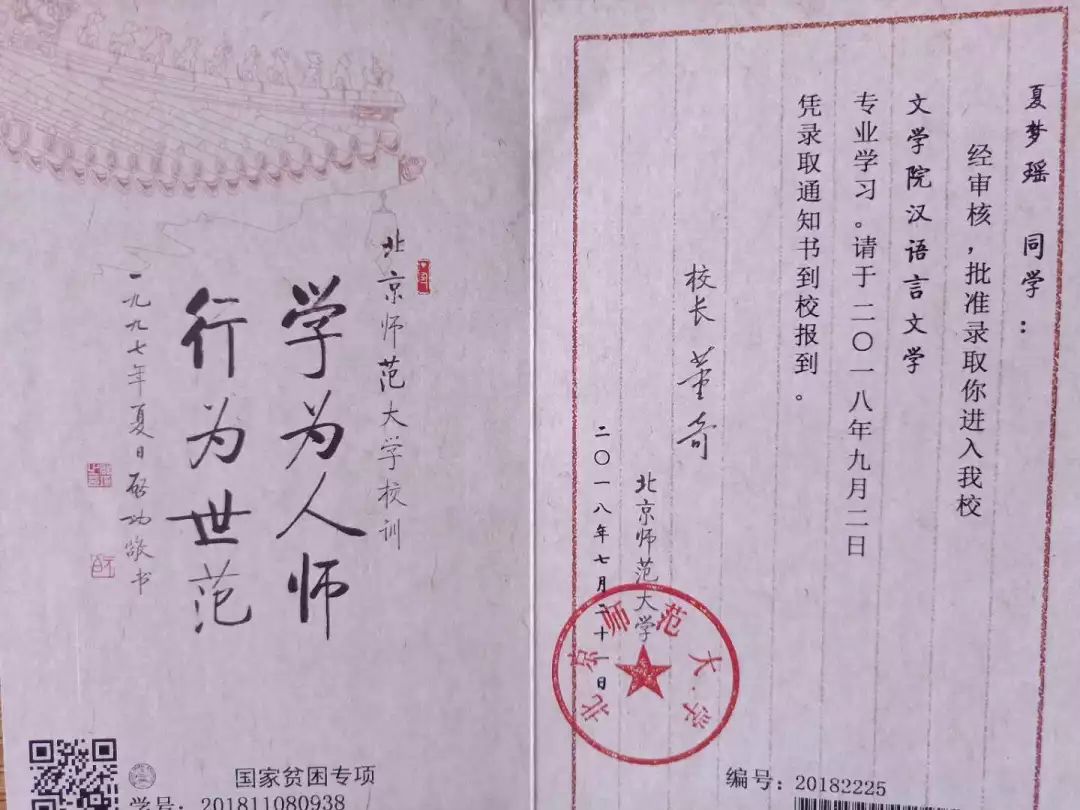 北京师范大学校训
学为人师
行为世范
一九九七年夏日启功敬书
国家贫困专项
学号：201811080938
夏梦瑶 同学：
经审核，批准录取你进入我校
文学院汉语言文学
专业学习。请于二〇一八年九月二日
凭录取通知书到校报到。
校长 董奇
北京师范大学
二〇一八年七月二十一日
北京师范大学
编号：20182225